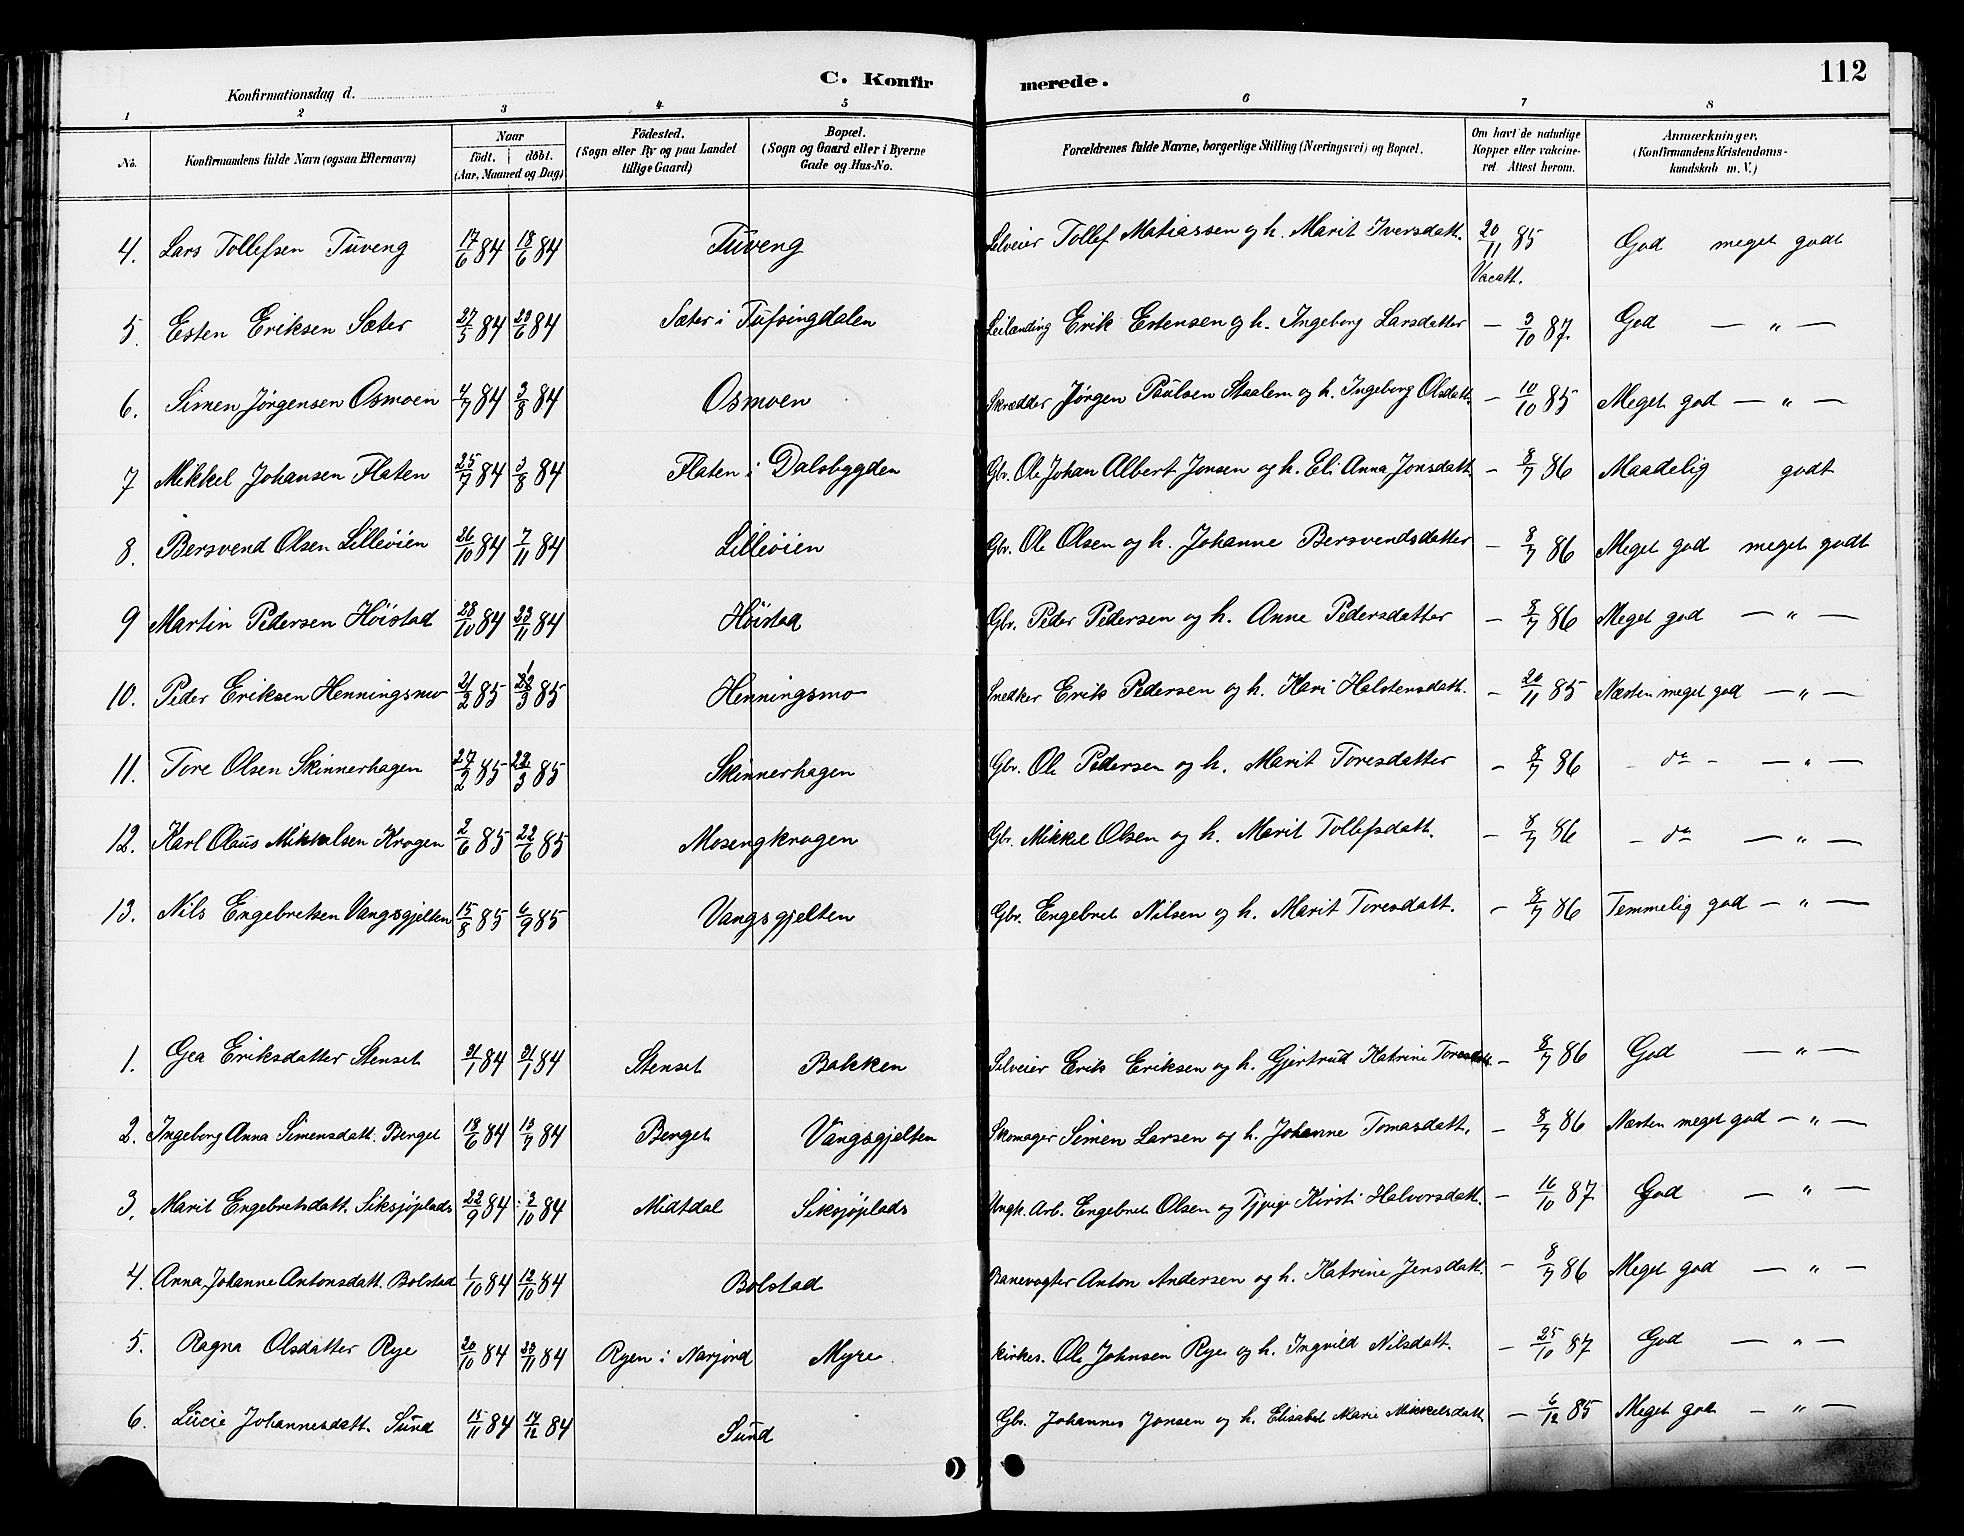 C. Konfirmerede.
112
Konfirmationsdag d.
1 2 3 4 5 6 7 8
No. Konfirmandens fulde Navn (ogsaa Efternavn) Naar födt. döbt. (Aar, Maaned og Dag) Födested. (Sogn eller By og paa Landet tillige Gaard) Bopæl. (Sogn og Gaard eller i Byerne Gade og Hus-No. Forældrenes fulde Navne, borgerlige Stilling (Næringsvei) og Bopæl. Om havt de naturlige Kopper eller vakcineret. Attest herom. Anmærkninger. (Konfirmandens Kristendomskundskab m. V.)
4. Lars Tollefsen Tuveng 17/6 84 18/6 84 Tuveng Selveier Tollef Matiassen og h. Marit Iversdatt. 20/11 85 Vacatt. God meget godt
5. Esten Eriksen Sæter 27/5 84 29/6 84 Sæter i Tufsingdalen Leilænding Erik Estensen og h. Ingeborg Larsdatter — 3/10 87. God — „ —
6. Simen Jørgensen Osmoen 4/7 84 3/8 84 Osmoen Skrædder Jørgen Paulsen Staalem og h. Ingeborg Olsdatt. — 10/10 85 Meget god — „ —
7 Mikkel Johansen Flaten 25/7 84 3/8 84 Flaten i Dalsbygden Gbr. Ole Johan Albert Jonsen og h. Eli Anna Jonsdatt. — 8/7 86 Maadelig godt
8. Bersvend Olsen Lilleøien 26/10 84 7/11 84 Lilleøien Gbr. Ole Olsen og h. Johanne Bersvendsdatter — 8/7 86 Meget god meget godt
9 Martin Pedersen Høistad 28/10 84 23/11 84 Høistad Gbr. Peder Pedersen og h. Anne Pedersdatter — 8/7 86 Meget god — „ —
10. Peder Eriksen Henningsmo 21/2 85 /3 85 Henningsmo Snedker Erik Pedersen og h. Kari Halstensdatt. — 20/11 85 Næsten meget god — „ —
11. Tore Olsen Skinnerhagen 27/2 85 22/3 85 Skinnerhagen Gbr. Ole Pedersen og h. Marit Toresdatter — 8/7 86 — do — — „ —
12. Karl Olaus Mikkelsen Krogen 2/6 85 22/6 85 Mosengkrogen Gbr. Mikkel Olsen og h. Marit Tollefsdatt. — 8/7 86 — do — „ —
13. Nils Engebretsen Vangsgjelten 15/8 85 6/9 85 Vangsgjelten Gbr. Engebret Nilsen og h. Marit Toresdatt. — 8/7 86 Temmelig god — „ —
1. Gea Eriksdatter Stenset 31/1 84 31/1 84 Stenset Bakken Selveier Erik Eriksen og h. Gjertrud Katrine Toresdatt. — 8/7 86 God — „ —
2. Ingeborg Anna Simensdatt. Berget 18/6 84 13/7 84 Berget Vangsgjelten Skomager Simen Larsen og h. Johanne Tomasdatt. — 8/7 86 Næsten meget god — „ —
3. Marit Engebretsdatt. Siksjøplads 22/9 84 2/10 84 Midtdal Siksjöplads Ungk. Arb. Engebret Olsen og Pige Kirsti Halvorsdatt. — 16/10 87 God — „ —
4. Anna Johanne Antonsdatt. Bolstad 1/10 84 12/10 84 Bolstad Banevogter Anton Andersen og h. Katrine Jensdatt. — 8/7 86 Meget god — „ —
5. Ragna Olsdatter Rye 20/10 84 23/11 84 Ryen i Narjord Myre. Kirkes. Ole Johnsen Rye og h. Ingvild Nilsdatt. — 25/10 87 God — „ —
6. Lucie Johannesdatt. Sund 15/11 84 14/12 84 Sund Gbr. Johannes Jonsen og h. Elisabet Marie Mikkelsdatt. — 6/12 85 Meget god — „ —